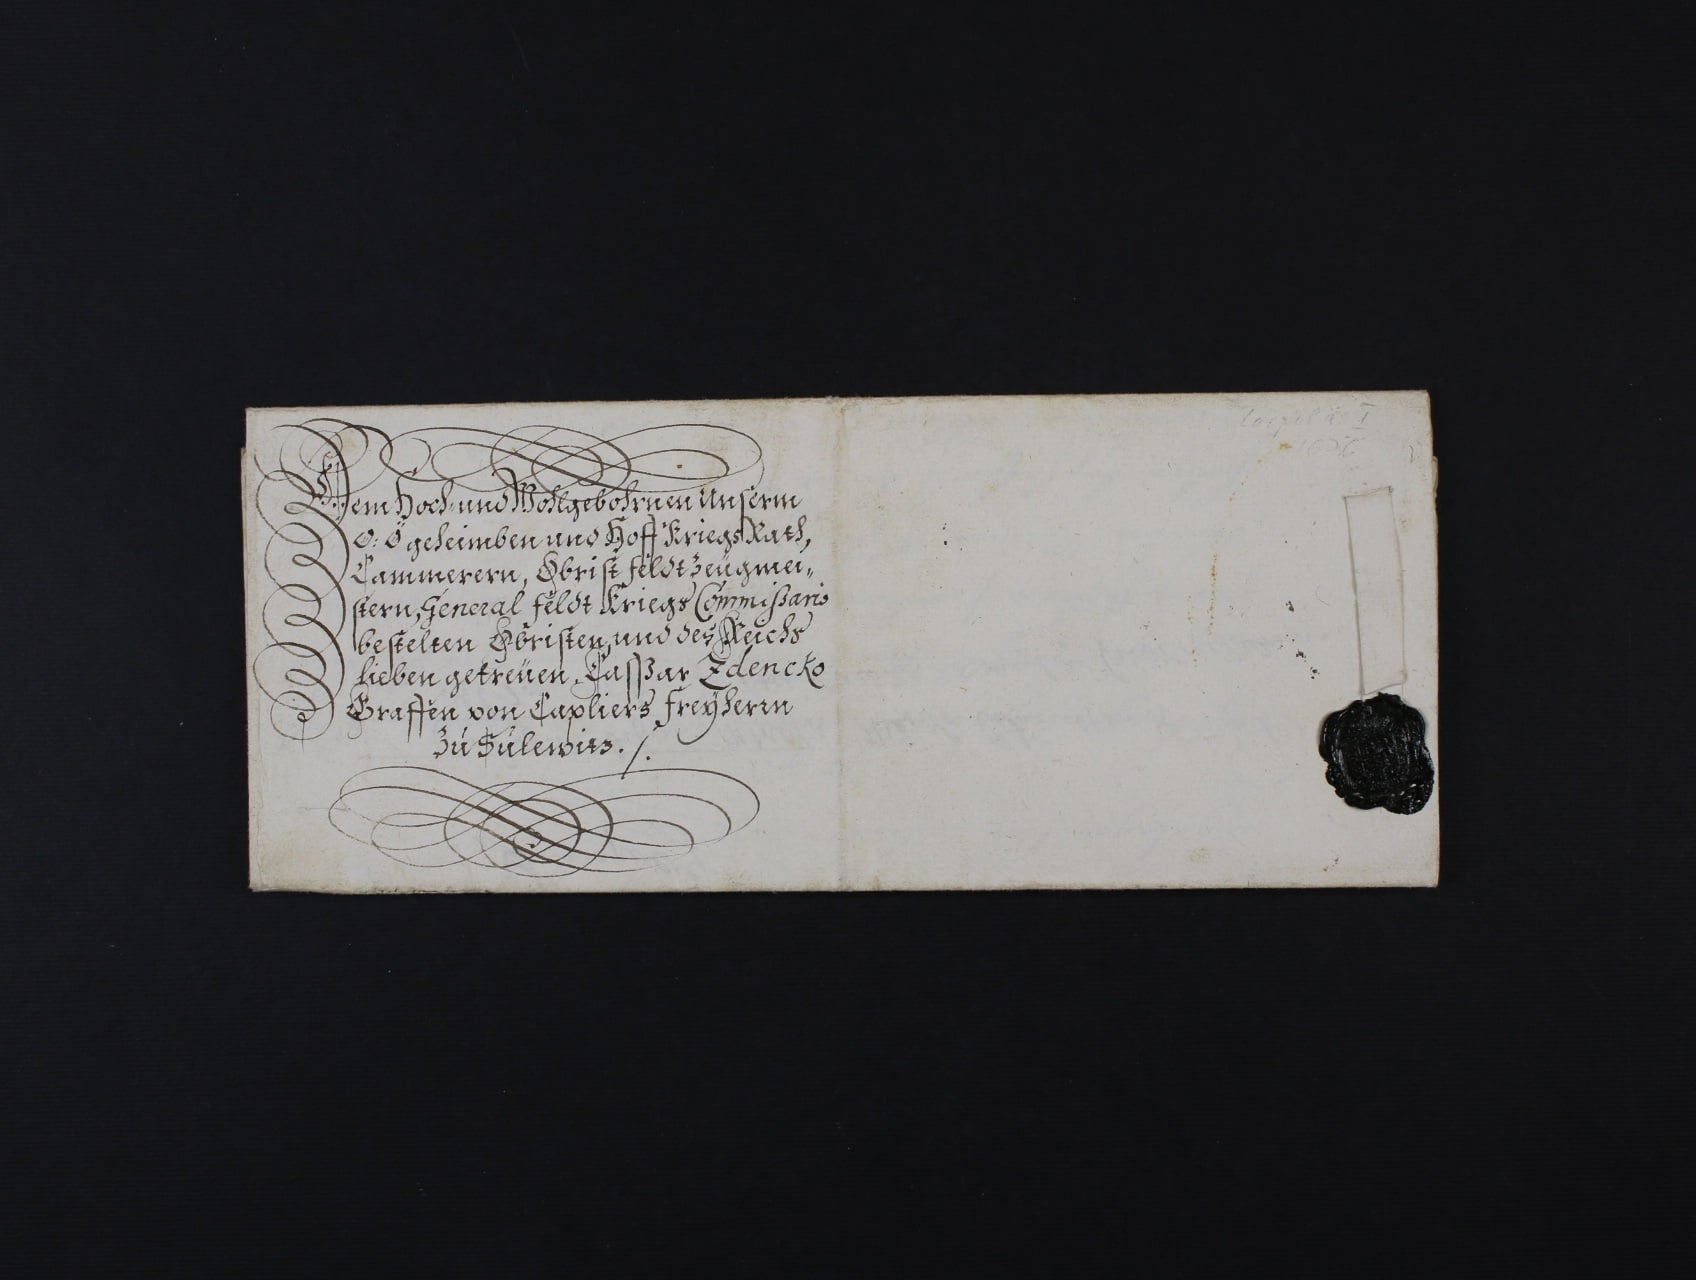 Dem Hoch- und Wohlgebohrnen Unserm
O: Ö geheimben und Hoff KriegsRath,
Cammerern, Obrist feldtZeügmei„
stern, General feldt Kriegs Commissario
bestelten Obristen, und des Reichs
lieben getreüen, Casßar Zdencko
Graffen von Capliers freÿherrn
Zú Súlewitz. /.